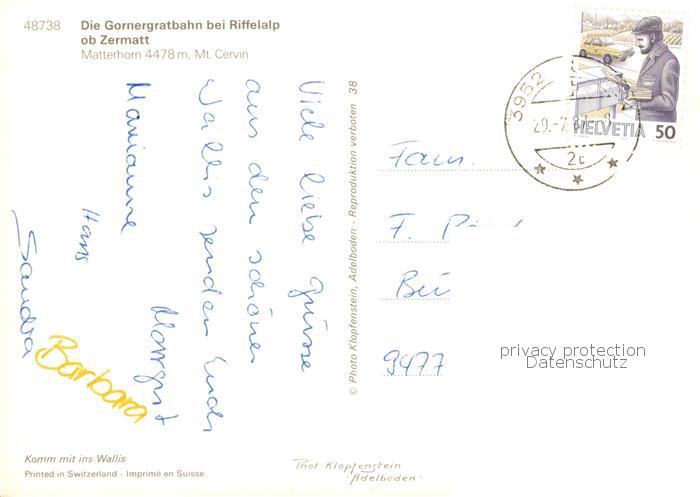 48738 Die Gornergratbahn bei Riffelalp
ob Zermatt
Matterhorn 4478 m, Mt. Cervin
Viele liebe Grüsse
aus dem schönen
Wallis senden Euch
Marianne
Hans
Margrit
Sandra
Barbara
Komm mit ins Wallis
Printed in Switzerland - Imprimé en Suisse
© Photo Klopfenstein, Adelboden - Reproduktion verboten 38
Phot Klopfenstein
-Adelboden-
3952
29.-7.87
2c
HELVETIA 50
Fam.
F.
9477
privacy protection
Datenschutz